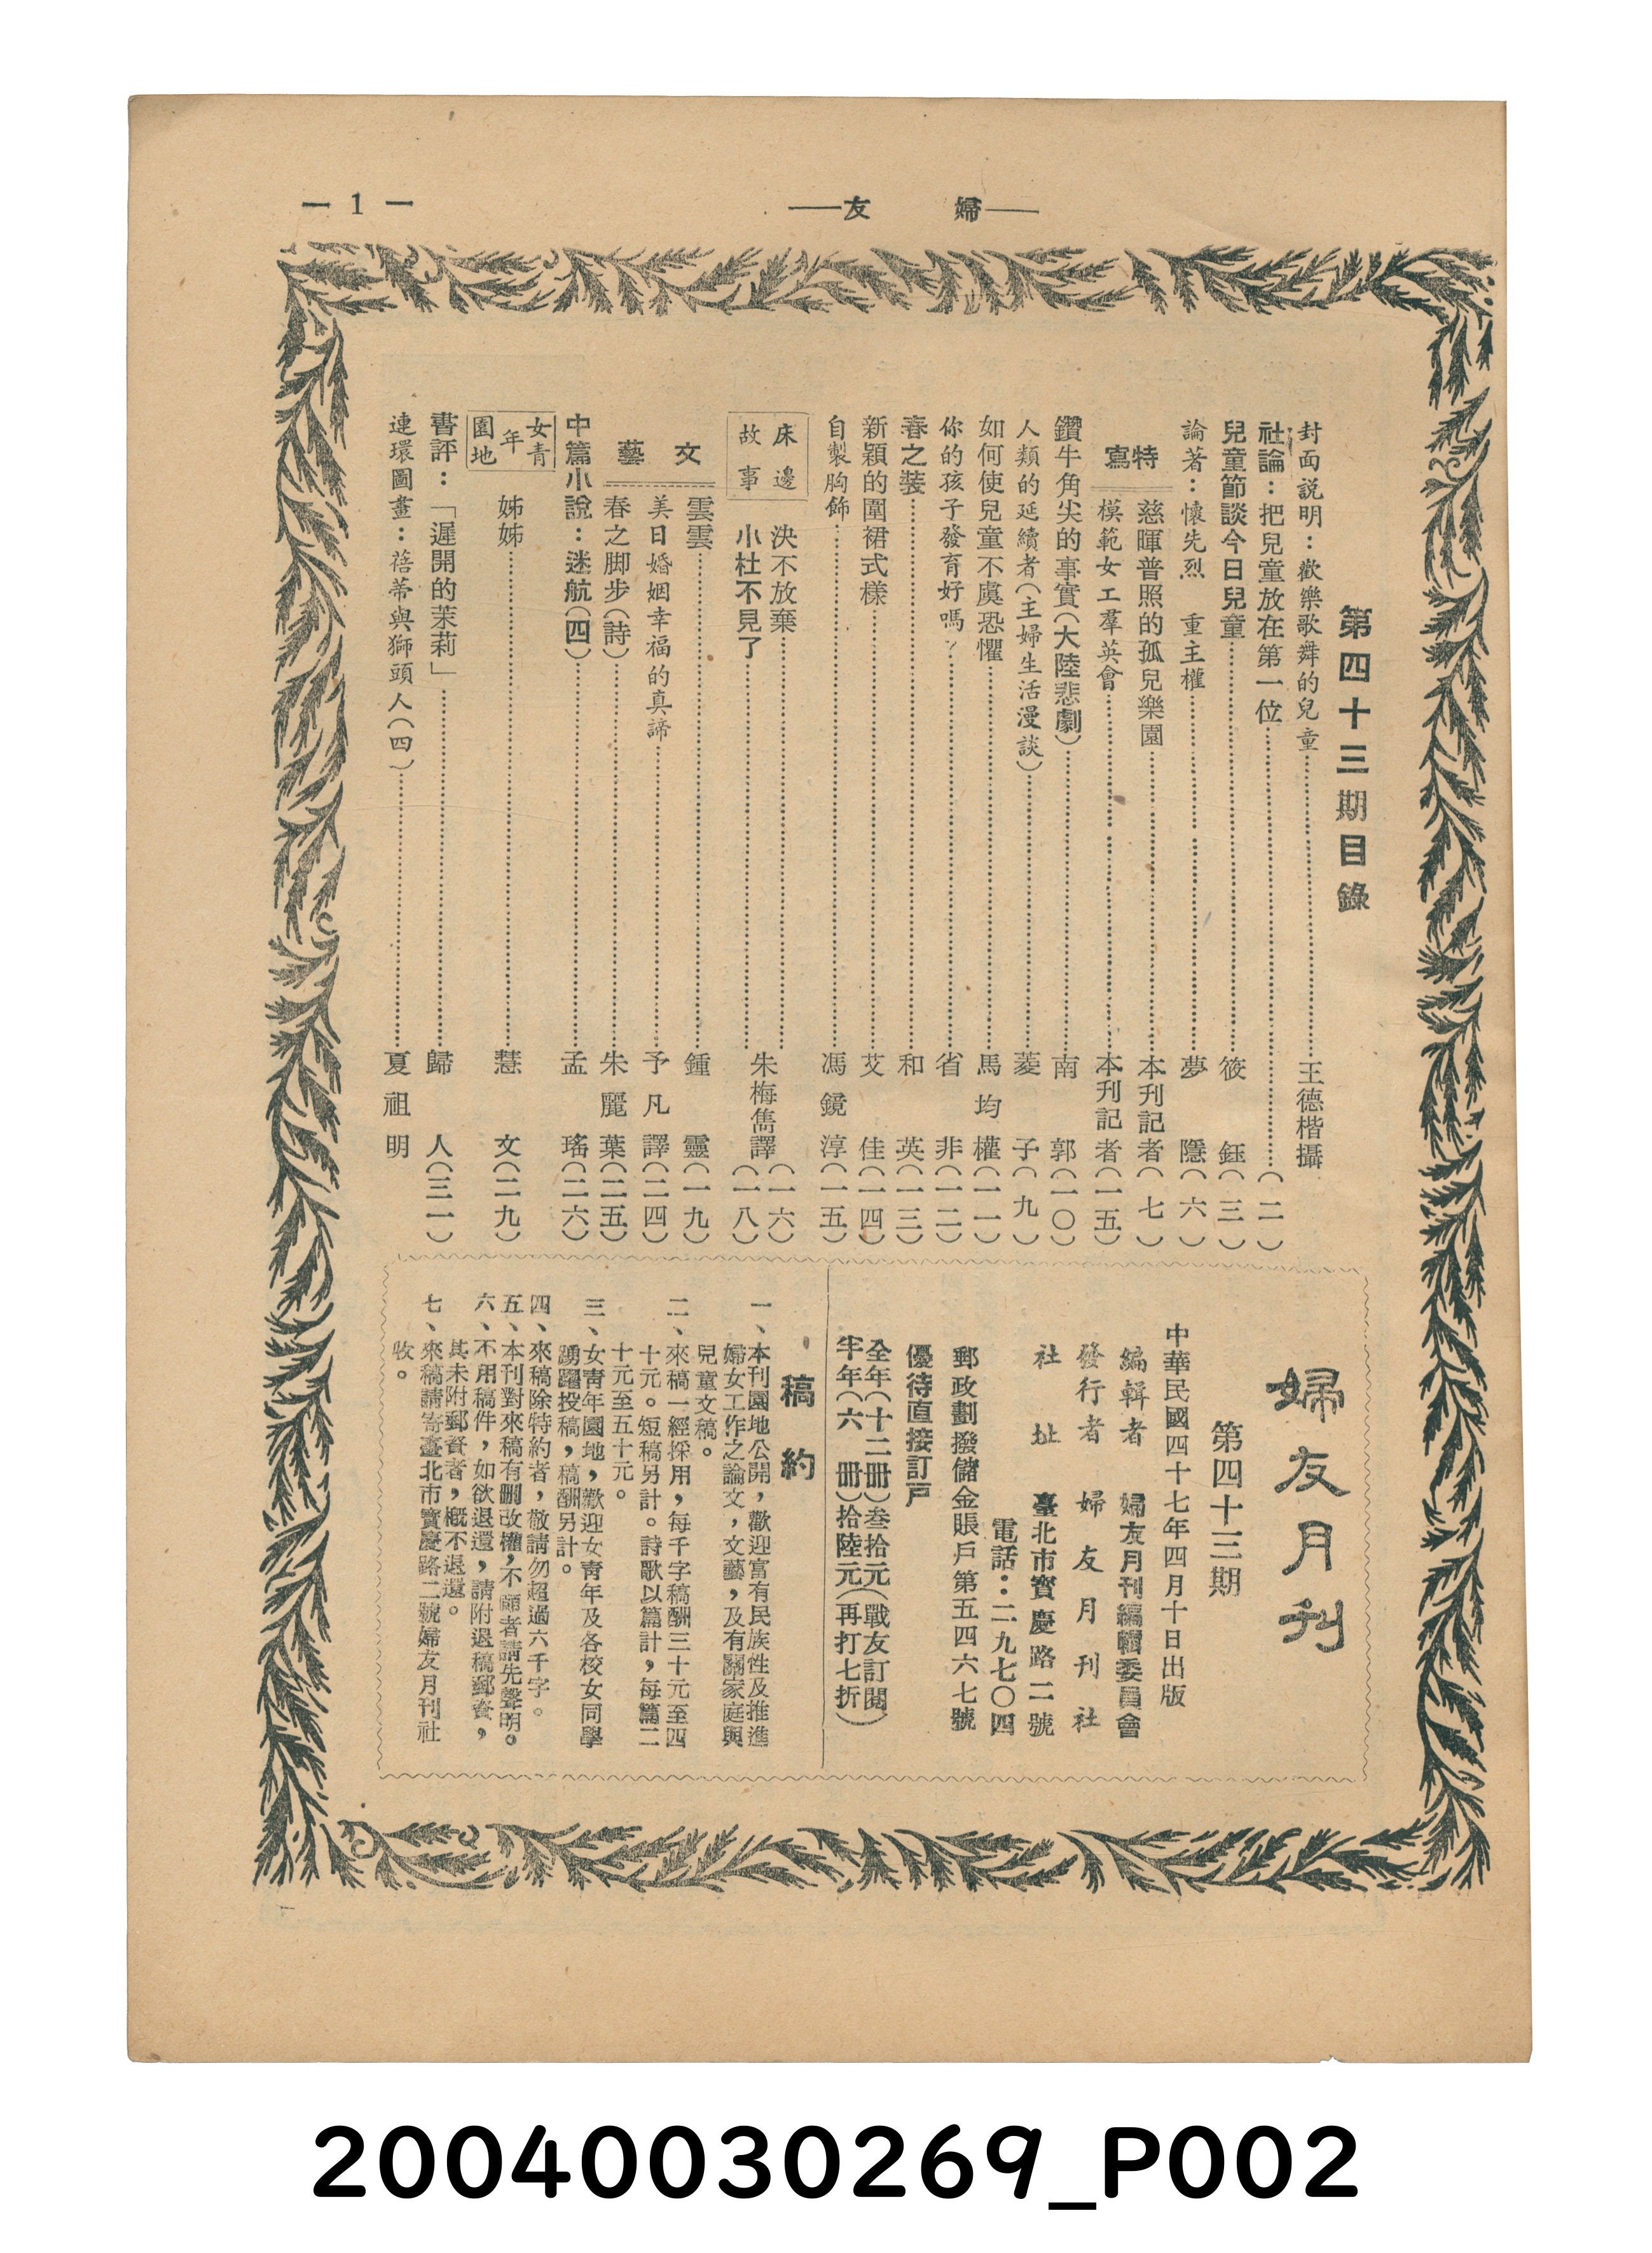 — 1 —
——婦　友——
第四十三期目錄
封面説明：歡樂歌舞的兒童……王德楷攝
社論：把兒童放在第一位……（二）
兒童節談今日兒童……筱鈺（三）
論著：懷先烈　重主權……夢隱（六）
特寫
慈暉普照的孤兒樂園……本刊記者（七）
模範女工羣英會……本刊記者（一五）
鑽牛角尖的事實（大陸悲劇）……南郭（一〇）
人類的延續者（主婦生活漫談）……菱子（九）
如何使兒童不虞恐懼……馬均權（一一）
你的孩子發育好嗎？……省非（一二）
春之裝……和英（一三）
新穎的圍裙式樣……艾佳（一四）
自製胸飾……馮鏡淳（一五）
床邊故事
決不放棄……（一六）
朱梅雋譯
小杜不見了……（一八）
文藝
雲雲……鍾靈（一九）
美日婚姻幸福的真諦……予凡譯（二四）
春之脚步（詩）……朱麗葉（二五）
中篇小說：迷航（四）……孟瑤（二六）
女青年園地
姊姊……慧文（二九）
書評：「遲開的茉莉」……歸人（三一）
連環圖畫：蓓蒂與獅頭人（四）……夏祖明
婦友月刊
第四十三期
中華民國四十七年四月十日出版
編輯者　婦友月刊編輯委員會
發行者　婦友月刊社
社址　臺北市寶慶路二號
電話：二九七〇四
郵政劃撥儲金賬戶第五四六七號
優待直接訂戶
全年（十二冊）叁拾元（戰友訂閱
半年（六　冊）拾陸元（再打七折）
稿約
一、本刊園地公開，歡迎富有民族性及推進
婦女工作之論文，文藝，及有關家庭與
兒童文稿。
二、來稿一經採用，每千字稿酬三十元至四
十元。短稿另計。詩歌以篇計，每篇二
十元至五十元。
三、女青年園地，歡迎女青年及各校女同學
踴躍投稿，稿酬另計。
四、來稿除特約者，敬請勿超過六千字。
五、本刊對來稿有刪改權，不願者請先聲明。
六、不用稿件，如欲退還，請附退稿郵資，
其未附郵資者，概不退還。
七、來稿請寄臺北市寶慶路二號婦友月刊社
收。
20040030269_P002